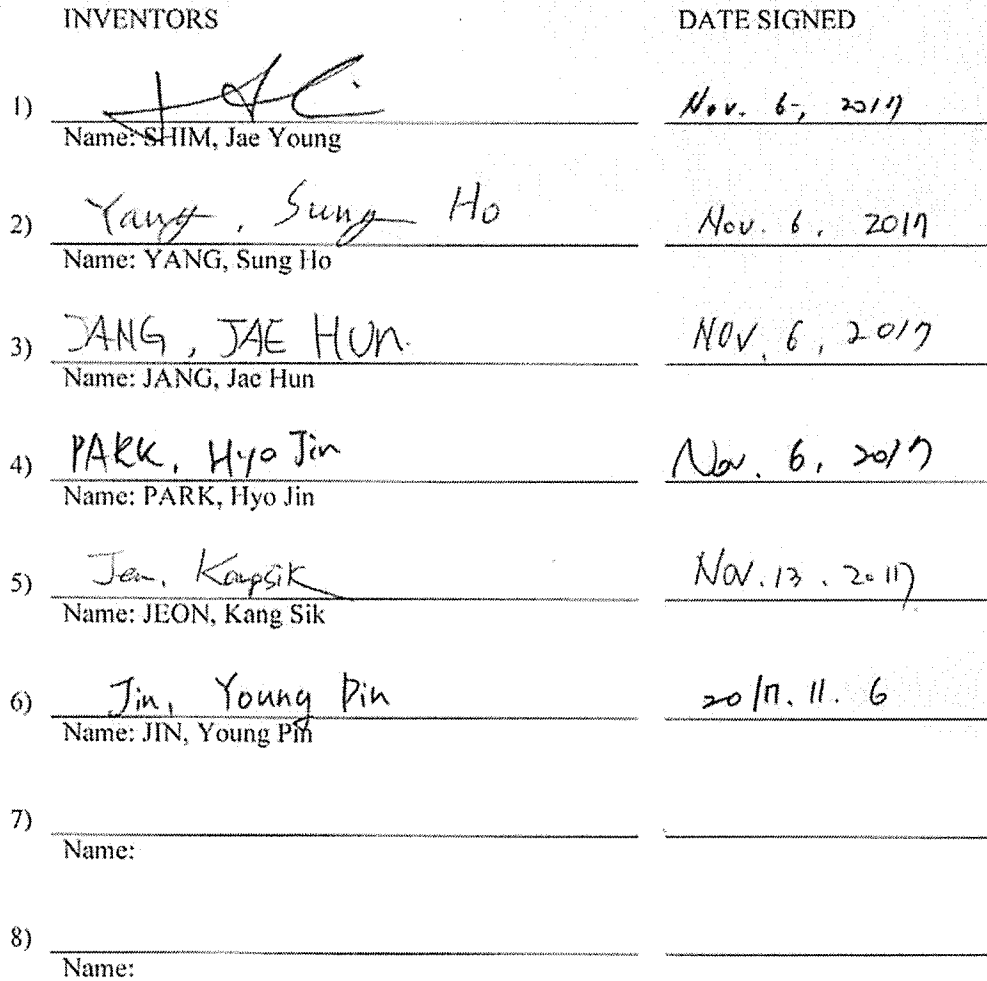 INVENTORS DATE SIGNED
1) Nov. 6, 2017
Name: SHIM, Jae Young
2) Yang, Sung Ho Nov. 6, 2017
Name: YANG, Sung Ho
3) JANG, JAE HUN. NOV. 6, 2017
Name: JANG, Jae Hun
4) PARK, Hyo Jin Nov. 6, 2017
Name: PARK, Hyo Jin
5) Nov. 13. 2017
Name: JEON, Kang Sik
6) Jin, Young Pin 2017. 11. 6
Name: JIN, Young Pin
7)
Name:
8)
Name: